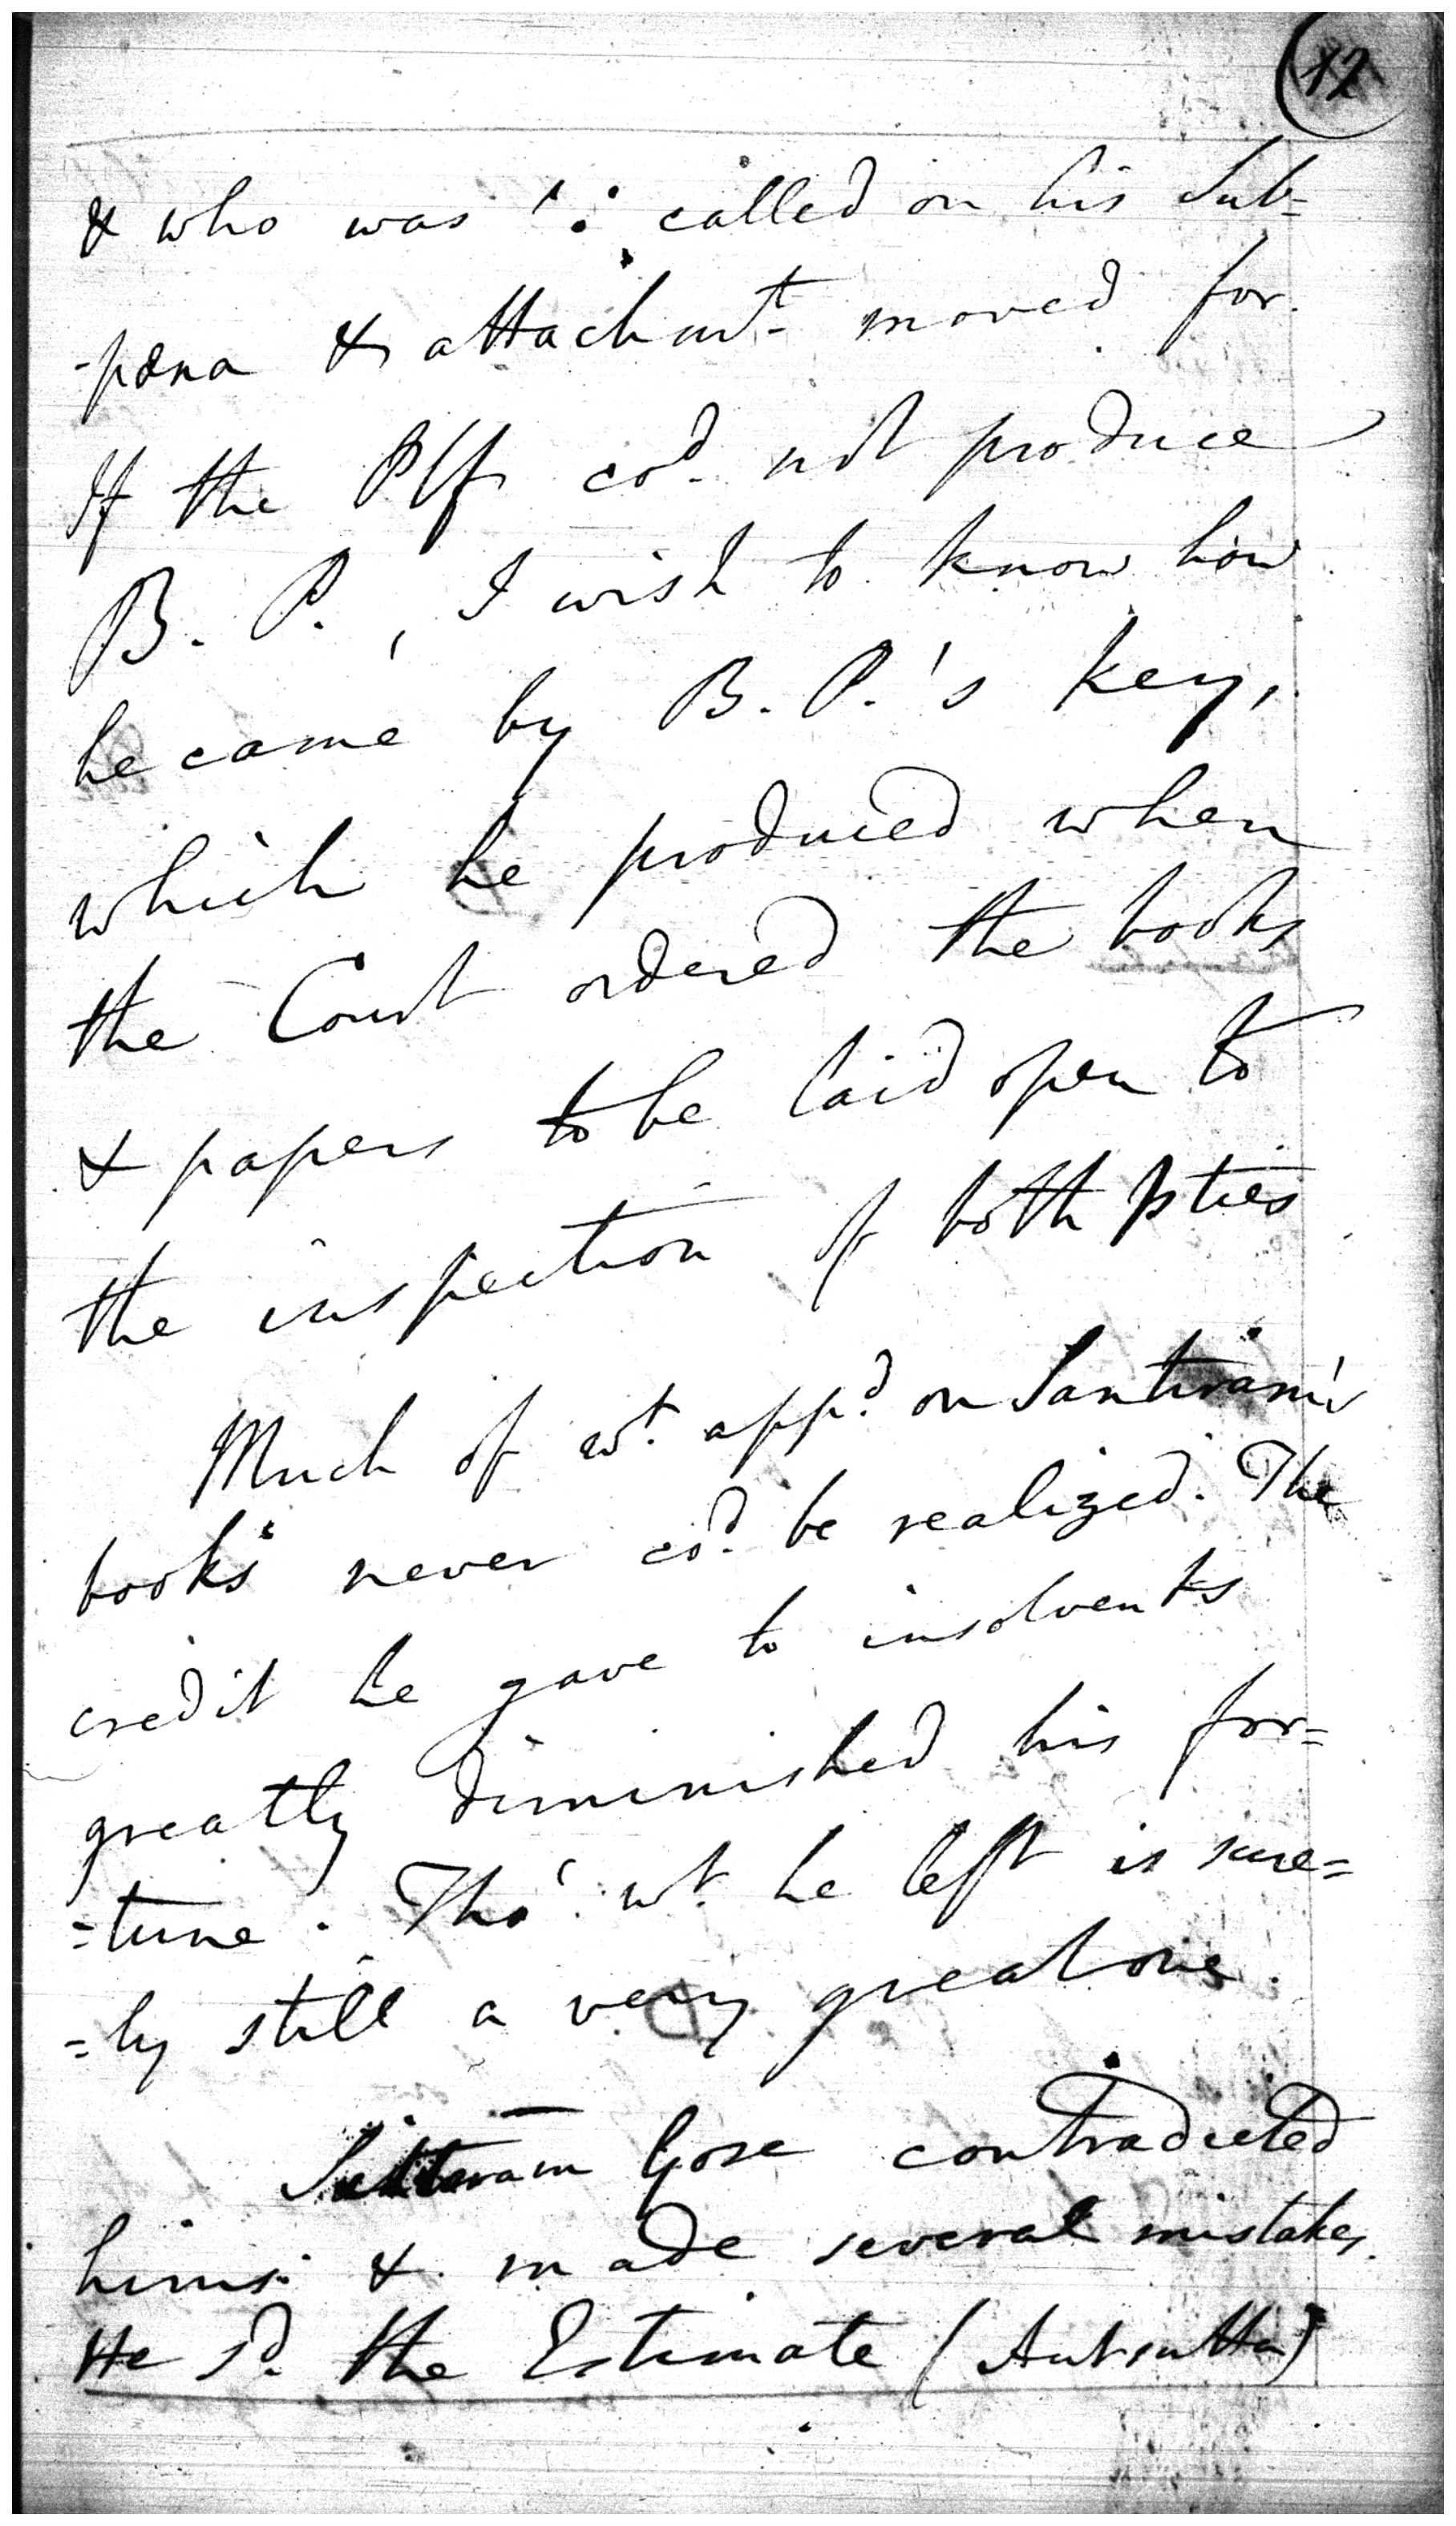 12
& who was called on his Sub=
-pœna & attachmt. moved for.
If the Plf cod. not produce
B. P., I wish to know how
he came by B. P.'s key,
which he produced when
the Court ordered the books
& papers to be laid open to
the inspection of both pties
Much of wt. appd. on Santiram's
books never cod. be realized. The
credit he gave to insolvents
greatly diminished his for=
=tune. Tho' wt. he left is sure=
=ly still a very great one.
Gose contradicted
hims. & made several mistakes.
He sd. the Estimate (